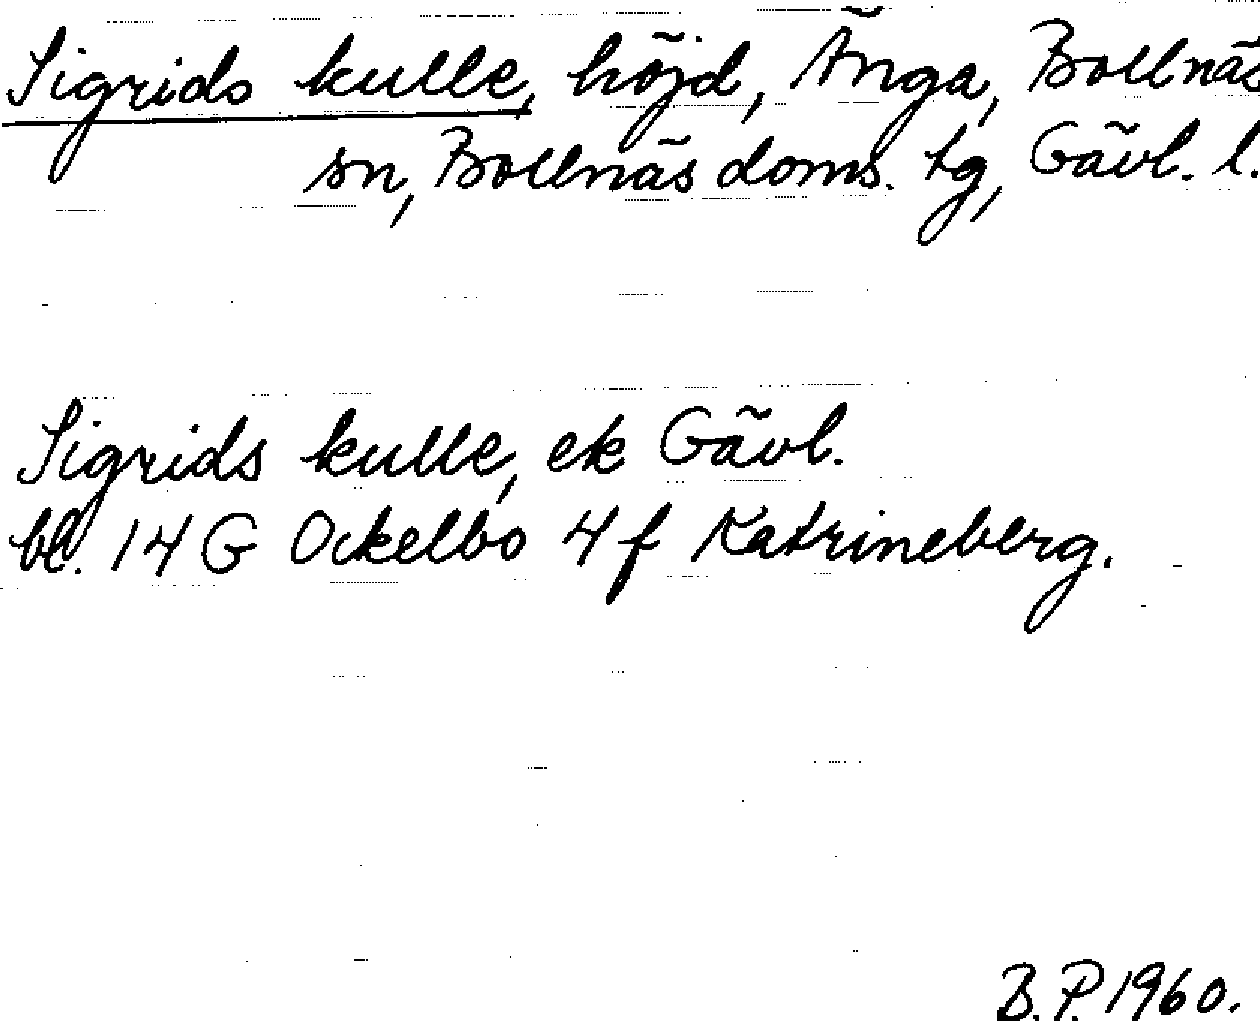 Sigrids kulle, höjd, Änga, Bollnäs
sn, Bollnäs doms. tg, Gävl. l.
Sigrids kulle, ek Gävl.
bl. 14 G Ockelbo 4 f Katrineberg.
B. P. 1960.